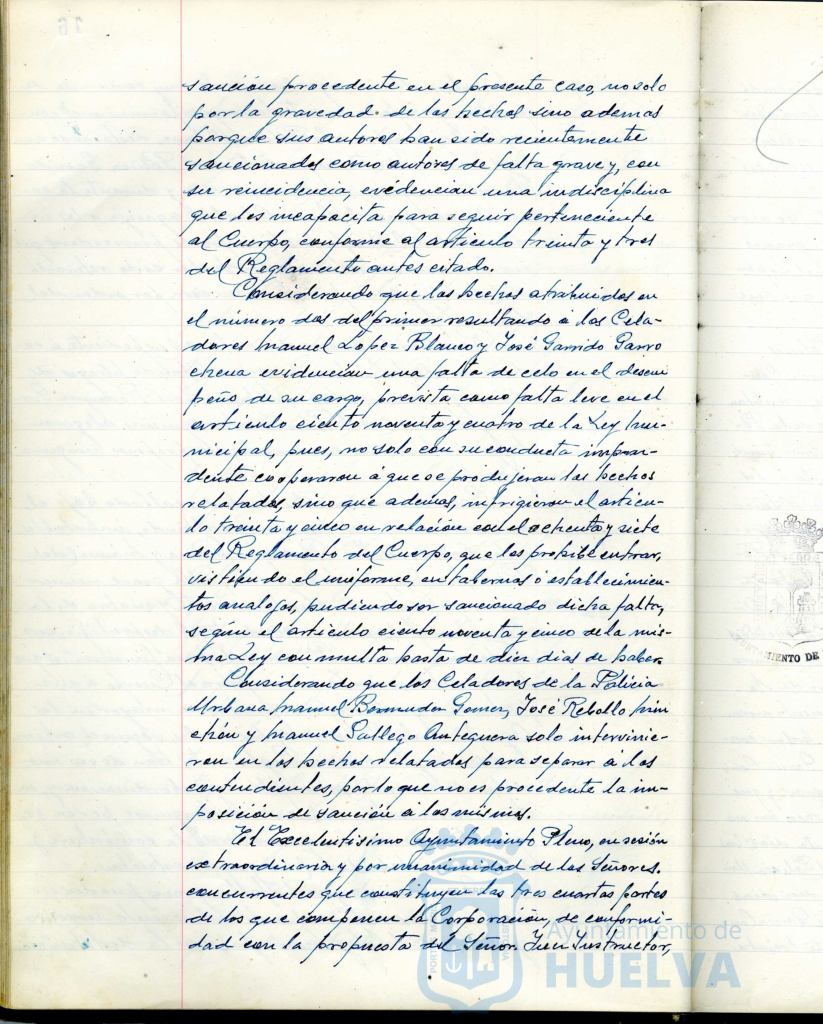 sanción procedente en el presente caso, no solo
por la gravedad de los hechos sino ademas
porque sus autores han sido recientemente
sancionados como autores de falta grave y, con
su reincidencia, evidencian una indisciplina
que los incapacita para seguir perteneciente
al Cuerpo, conforme al articulo treinta y tres
del Reglamento antes citado.
Considerando que los hechos atribuidos en
el número dos del primer resultando á los Cela-
dores Manuel Lopez Blanco y José Garrido Garro
chena evidencian una falta de celo en el desem
peño de su cargo, prevista como falta leve en el
articulo ciento noventa y cuatro de la Ley Mu-
nicipal, pues, no solo con su conducta impru-
dente cooperaron á que se produjeran los hechos
relatados, sino que ademas, infrigieron el articu-
lo treinta y cinco en relación con el ochenta y siete
del Reglamento del Cuerpo, que les prohibe entrar,
vistiendo el uniforme, en tabernas ó establecimien-
tos analogos, pudiendo ser sancionado dicha falta,
según el articulo ciento noventa y cinco de la mis-
ma Ley con multa hasta de diez dias de haber.
Considerando que los Celadores de la Policia
Urbana Manuel Bermudez Gomez, José Rebollo Min
chón y Manuel Gallego Antequera solo intervinie-
ron en los hechos relatados para separar á los
contendientes, por lo que no es procedente la im-
posición de sanción á los mismos.
El Excelentisimo Ayuntamiento Pleno, en sesión
extraordinaria y por unanimidad de los Señores
concurrentes que constituyen las tres cuartas partes
de los que componen la Corporación, de conformi
dad con la propuesta del Señor Juez Instructor,
Ayuntamiento de
HUELVA
MIENTO DE